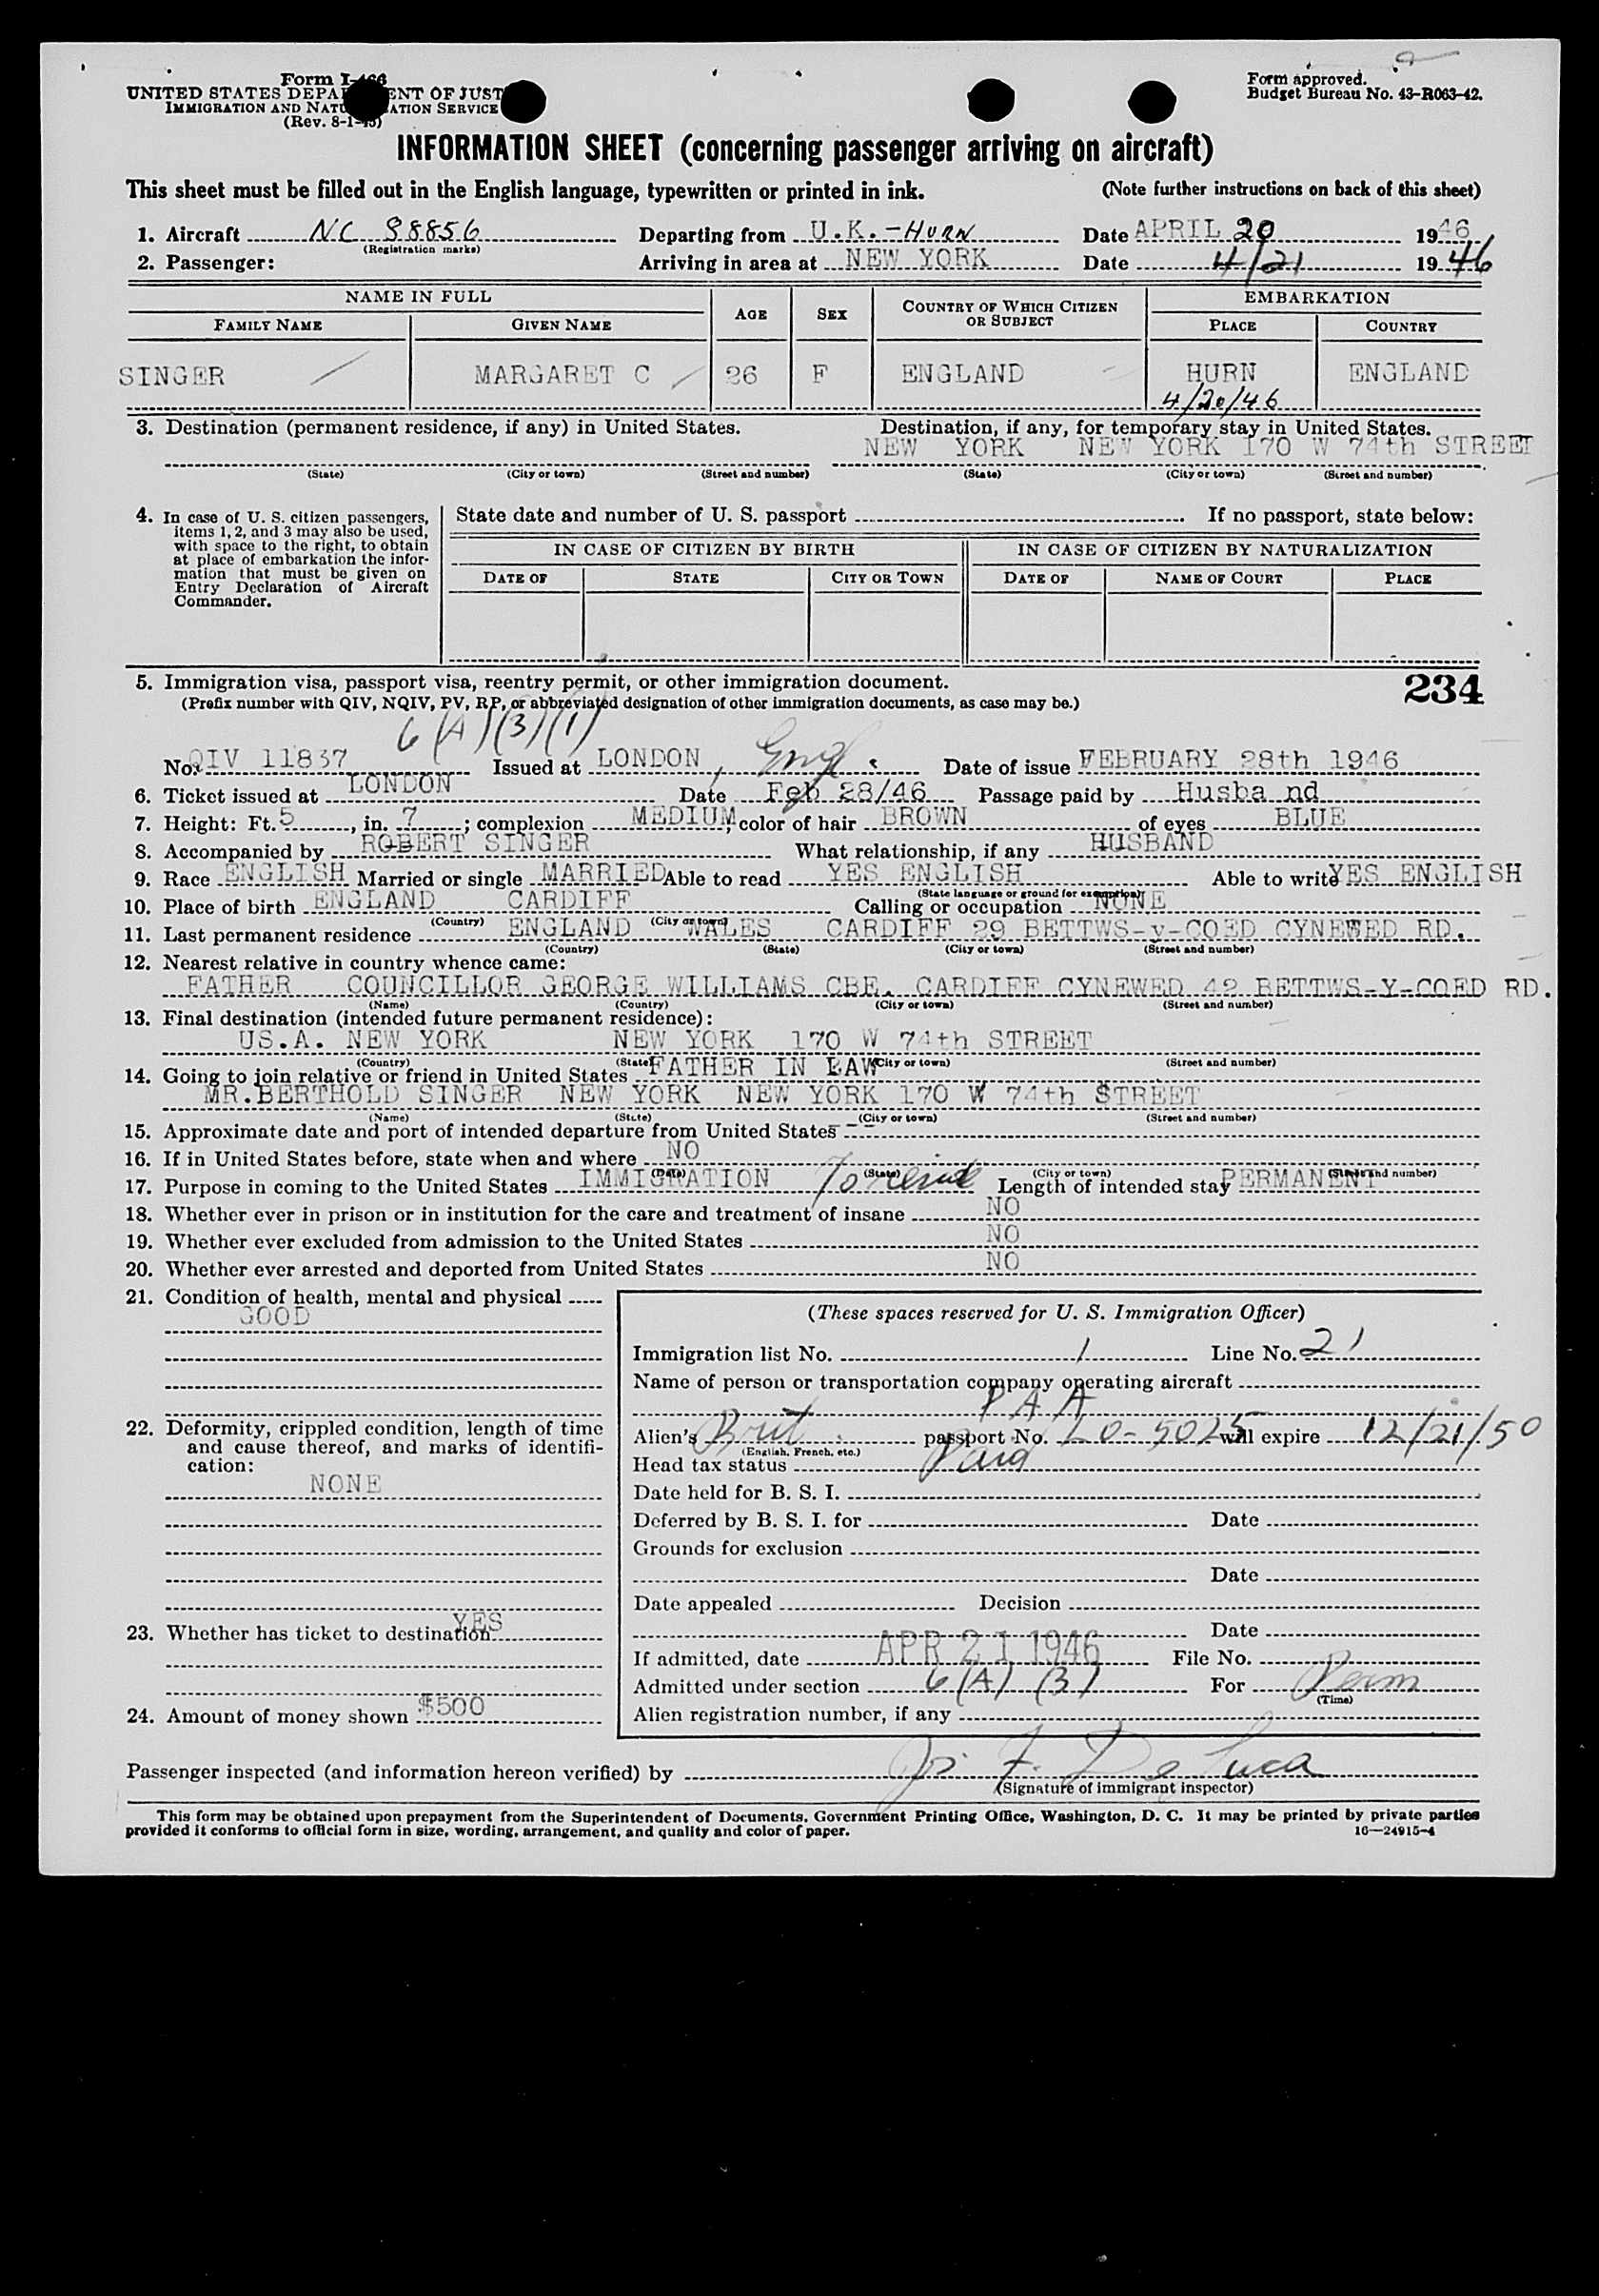 Form I-466
UNITED STATES DEPA ENT OF JUST
IMMIGRATION AND NATU ATION SERVICE
(Rev. 8-1-45)
Form approved.
Budget Bureau No. 43-R063-42.
INFORMATION SHEET (concerning passenger arriving on aircraft)
This sheet must be filled out in the English language, typewritten or printed in ink. (Note further instructions on back of this sheet)
1. Aircraft NC 88856 Departing from U.K.-HURN Date APRIL 20 1946
(Registration marks)
2. Passenger: Arriving in area at NEW YORK Date 4/21 1946
NAME IN FULL AGE SEX COUNTRY OF WHICH CITIZEN OR SUBJECT EMBARKATION
FAMILY NAME GIVEN NAME PLACE COUNTRY
SINGER MARGARET C 26 F ENGLAND HURN ENGLAND
4/20/46
3. Destination (permanent residence, if any) in United States. Destination, if any, for temporary stay in United States.
NEW YORK NEW YORK 170 W 74th STREET
(State) (City or town) (Street and number) (State) (City or town) (Street and number)
4. In case of U. S. citizen passengers, items 1, 2, and 3 may also be used, with space to the right, to obtain at place of embarkation the information that must be given on Entry Declaration of Aircraft Commander.
State date and number of U. S. passport If no passport, state below:
IN CASE OF CITIZEN BY BIRTH IN CASE OF CITIZEN BY NATURALIZATION
DATE OF STATE CITY OR TOWN DATE OF NAME OF COURT PLACE
5. Immigration visa, passport visa, reentry permit, or other immigration document. 234
(Prefix number with QIV, NQIV, PV, RP, or abbreviated designation of other immigration documents, as case may be.)
6(A)(3)(1)
No. QIV 11837 Issued at LONDON, Engl. Date of issue FEBRUARY 28th 1946
6. Ticket issued at LONDON Date Feb 28/46 Passage paid by Husba nd
7. Height: Ft. 5, in. 7; complexion MEDIUM, color of hair BROWN of eyes BLUE
8. Accompanied by ROBERT SINGER What relationship, if any HUSBAND
9. Race ENGLISH Married or single MARRIED Able to read YES ENGLISH Able to write YES ENGLISH
(State language or ground for exemption)
10. Place of birth ENGLAND CARDIFF Calling or occupation NONE
(Country) (City or town)
11. Last permanent residence ENGLAND WALES CARDIFF 29 BETTWS-y-COED CYNEWED RD.
(Country) (State) (City or town) (Street and number)
12. Nearest relative in country whence came:
FATHER COUNCILLOR GEORGE WILLIAMS CBE. CARDIFF CYNEWED 42 BETTWS-Y-COED RD.
(Name) (Country) (City or town) (Street and number)
13. Final destination (intended future permanent residence):
US.A. NEW YORK NEW YORK 170 W 74th STREET
(Country) (State) (City or town) (Street and number)
14. Going to join relative or friend in United States FATHER IN LAW
MR.BERTHOLD SINGER NEW YORK NEW YORK 170 W 74th STREET
(Name) (State) (City or town) (Street and number)
15. Approximate date and port of intended departure from United States - -
16. If in United States before, state when and where NO
(Date) (State) (City or town) (Street and number)
17. Purpose in coming to the United States IMMIGRATION To reside Length of intended stay PERMANENT
18. Whether ever in prison or in institution for the care and treatment of insane NO
19. Whether ever excluded from admission to the United States NO
20. Whether ever arrested and deported from United States NO
21. Condition of health, mental and physical
GOOD
22. Deformity, crippled condition, length of time
and cause thereof, and marks of identifi-
cation:
NONE
23. Whether has ticket to destination YES
24. Amount of money shown $500
(These spaces reserved for U. S. Immigration Officer)
Immigration list No. 1 Line No. 21
Name of person or transportation company operating aircraft
P A A
Alien's Brit. passport No. LO-5025 will expire 12/21/50
(English, French, etc.)
Head tax status Paid
Date held for B. S. I.
Deferred by B. S. I. for Date
Grounds for exclusion
Date
Date appealed Decision
Date
If admitted, date APR 21 1946 File No.
Admitted under section 6(A)(3) For Perm
(Time)
Alien registration number, if any
Passenger inspected (and information hereon verified) by F. De Luca
(Signature of immigrant inspector)
This form may be obtained upon prepayment from the Superintendent of Documents, Government Printing Office, Washington, D. C. It may be printed by private parties
provided it conforms to official form in size, wording, arrangement, and quality and color of paper. 16—24915-4